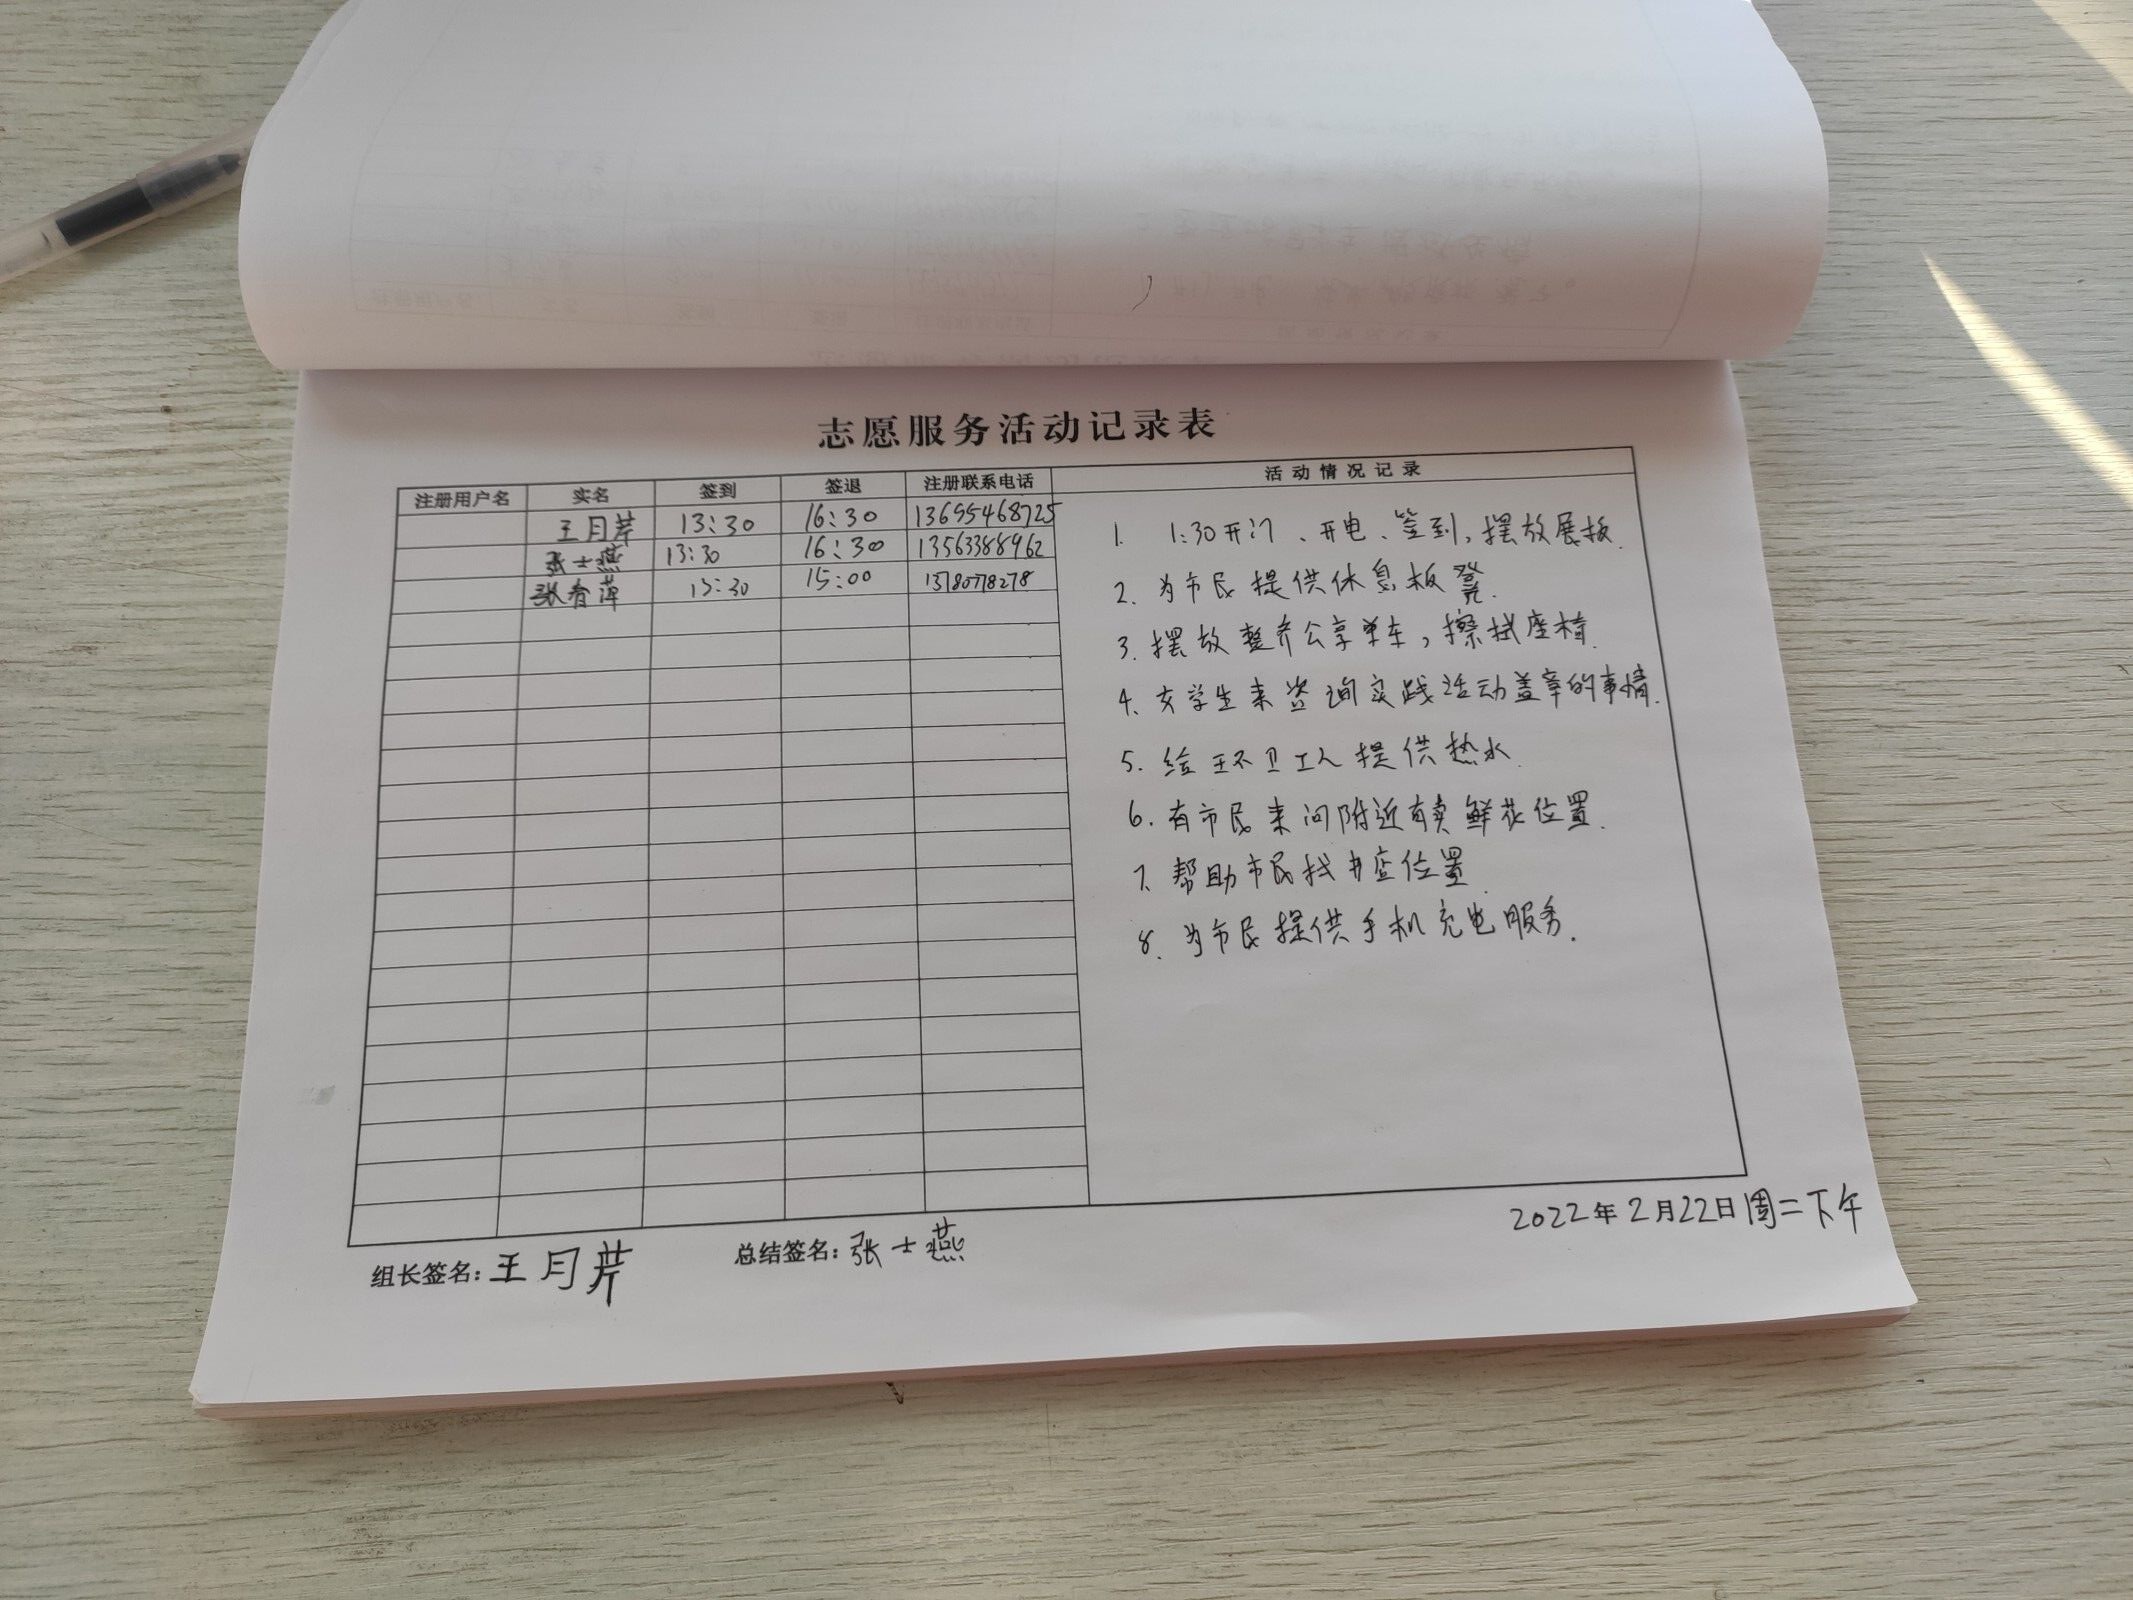 志愿服务活动记录表
注册用户名 实名 签到 签退 注册联系电话 活动情况记录
王月芹 13:30 16:30 13695468725
张士燕 13:30 16:30 13563388962
张春萍 13:30 15:00 13780778278
1. 1:30开门、开电、签到,摆放展板.
2. 为市民提供休息板凳.
3. 摆放整齐公享单车,擦拭座椅.
4. 女学生来咨询实践活动盖章的事情.
5. 给环卫工人提供热水.
6. 有市民来问附近有卖鲜花位置.
7. 帮助市民找书店位置.
8. 为市民提供手机充电服务.
2022年2月22日周二下午
组长签名:王月芹 总结签名:张士燕